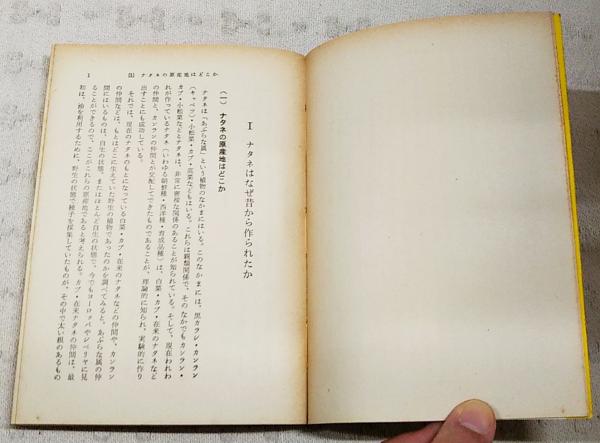 1　(1) ナタネの原産地はどこか
I　ナタネはなぜ昔から作られたか
(一)　ナタネの原産地はどこか
ナタネは「あぶらな属」という植物のなかまにはいる。このなかまには、黒カラシ・カンラン
(キャベツ)・小松菜・カブ・高菜などもはいる。これらは親類関係で、そのなかでもカンラン・
カブ・小松菜などとナタネは、非常に密接な関係のあることが知られている。そして、現在われわ
れが作っているナタネ(いわゆる朝鮮種・西洋種・育成品種)は、白菜・カブ・在来のナタネなど
の仲間と、カンランの仲間とが交配してできたものであることが、理論的に知られ、実験的に作り
出すことにも成功している。
それでは、現在のナタネのもとになっている白菜・カブ・在来のナタネなどの仲間や、カンラン
の仲間などは、もとはどこに生えていた野生の植物であったのかを調べてみると、あぶらな属の仲
間にはいるものは、自生の状態、またはほとんど自生の状態で、今でもヨーロッパやシベリヤに見
ることができるので、ここがこれらの原産地であると考えられる。カブ・在来ナタネの仲間は、最
初は、油を利用するために、野生の状態で種子を採集していたものが、その中で太い根のあるもの